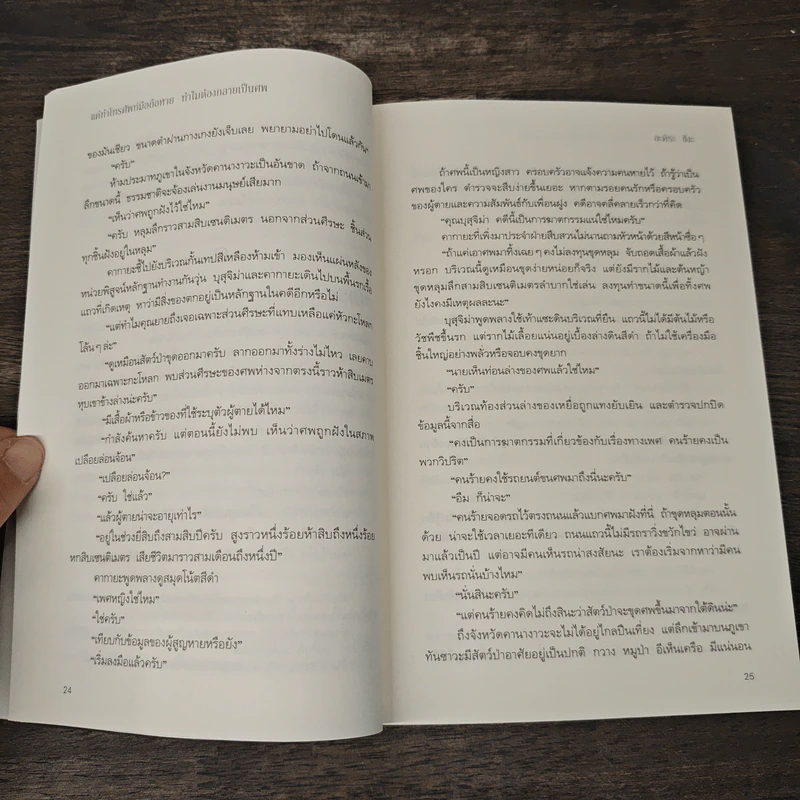 แค่ทำโทรศัพท์มือถือหาย ทำไมต้องกลายเป็นศพ
ของมันเชียว ขนาดตำผ่านกางเกงยังเจ็บเลย พยายามอย่าไปโดนแล้วกัน"
"ครับ"
ห้ามประมาทภูเขาในจังหวัดคานางาวะเป็นอันขาด ถ้าจากถนนเข้ามา
ลึกขนาดนี้ ธรรมชาติจะจ้องเล่นงานมนุษย์เสียมาก
"เห็นว่าศพถูกฝังไว้ใช่ไหม"
"ครับ หลุมลึกราวสามสิบเซนติเมตร นอกจากส่วนศีรษะ ชิ้นส่วน
ทุกชิ้นฝังอยู่ในหลุม"
คากายะชี้ไปยังบริเวณกั้นเทปสีเหลืองห้ามเข้า มองเห็นแผ่นหลังของ
หน่วยพิสูจน์หลักฐานทำงานกันวุ่น บุสุจิม่าและคากายะเดินไปบนพื้นรกเรื้อ
แถวที่เกิดเหตุ หาว่ามีสิ่งของตกอยู่เป็นหลักฐานในคดีอีกหรือไม่
"แต่ทำไมคุณยายถึงเจอเฉพาะส่วนศีรษะที่แทบเหลือแค่หัวกะโหลก
โล้นๆ ล่ะ"
"ดูเหมือนสัตว์ป่าขุดออกมาครับ ลากออกมาทั้งร่างไม่ไหว เลยคาบ
ออกมาเฉพาะกะโหลก พบส่วนศีรษะของศพห่างจากตรงนี้ราวห้าสิบเมตร
หุบเขาข้างล่างน่ะครับ"
"มีเสื้อผ้าหรือข้าวของที่ใช้ระบุตัวผู้ตายได้ไหม"
"กำลังค้นหาครับ แต่ตอนนี้ยังไม่พบ เห็นว่าศพถูกฝังในสภาพ
เปลือยล่อนจ้อน"
"เปลือยล่อนจ้อน?"
"ครับ ใช่แล้ว"
"แล้วผู้ตายน่าจะอายุเท่าไร"
"อยู่ในช่วงยี่สิบถึงสามสิบปีครับ สูงราวหนึ่งร้อยห้าสิบถึงหนึ่งร้อย
หกสิบเซนติเมตร เสียชีวิตมาราวสามเดือนถึงหนึ่งปี"
คากายะพูดพลางดูสมุดโน้ตสีดำ
"เพศหญิงใช่ไหม"
"ใช่ครับ"
"เทียบกับข้อมูลของผู้สูญหายหรือยัง"
"เริ่มลงมือแล้วครับ"
24
อะคิระ ชิงะ
ถ้าศพนี้เป็นหญิงสาว ครอบครัวอาจแจ้งความคนหายไว้ ถ้ารู้ว่าเป็น
ศพของใคร ตำรวจจะสืบง่ายขึ้นเยอะ หากตามรอยคนรักหรือครอบครัว
ของผู้ตายและความสัมพันธ์กับเพื่อนฝูง คดีอาจคลี่คลายเร็วกว่าที่คิด
"คุณบุสุจิม่า คดีนี้เป็นการฆาตกรรมแน่ใช่ไหมครับ"
คากายะที่เพิ่งมาประจำฝ่ายสืบสวนไม่นานถามหัวหน้าด้วยสีหน้าซื่อๆ
"ถ้าแค่เอาศพมาทิ้งเฉยๆ คงไม่ลงทุนขุดหลุม จับถอดเสื้อผ้าแล้วฝัง
หรอก บริเวณนี้ดูเหมือนขุดง่ายหน่อยก็จริง แต่ยังมีรากไม้และต้นหญ้า
ขุดหลุมลึกสามสิบเซนติเมตรลำบากใช่เล่น ลงทุนทำขนาดนี้เพื่อทิ้งศพ
ยังไงคงมีเหตุผลละนะ"
บุสุจิม่าพูดพลางใช้เท้าแซะดินบริเวณที่ยืน แถวนี้ไม่ได้มีต้นไม้หรือ
วัชพืชขึ้นรก แต่รากไม้เลื้อยแน่นอยู่เบื้องล่างดินสีดำ ถ้าไม่ใช้เครื่องมือ
ชิ้นใหญ่อย่างพลั่วหรือจอบคงขุดยาก
"นายเห็นท่อนล่างของศพแล้วใช่ไหม"
"ครับ"
บริเวณท้องส่วนล่างของเหยื่อถูกแทงยับเยิน และตำรวจปกปิด
ข้อมูลนี้จากสื่อ
"คงเป็นการฆาตกรรมที่เกี่ยวข้องกับเรื่องทางเพศ คนร้ายคงเป็น
พวกวิปริต"
"คนร้ายคงใช้รถยนต์ขนศพมาถึงนี่นะครับ"
"อืม ก็น่าจะ"
"คนร้ายจอดรถไว้ตรงถนนแล้วแบกศพมาฝังที่นี่ ถ้าขุดหลุมตอนนั้น
ด้วย น่าจะใช้เวลาเยอะทีเดียว ถนนแถวนี้ไม่มีรถราวิ่งขวักไขว่ อาจผ่าน
มาแล้วเป็นปี แต่อาจมีคนเห็นรถน่าสงสัยนะ เราต้องเริ่มจากหาว่ามีคน
พบเห็นรถนั่นบ้างไหม"
"นั่นสินะครับ"
"แต่คนร้ายคงคิดไม่ถึงสินะว่าสัตว์ป่าจะขุดศพขึ้นมาจากใต้ดินน่ะ"
ถึงจังหวัดคานางาวะจะไม่ได้อยู่ไกลปืนเที่ยง แต่ลึกเข้ามาบนภูเขา
ทันซาวะมีสัตว์ป่าอาศัยอยู่เป็นปกติ กวาง หมูป่า อีเห็นเครือ มีแน่นอน
25